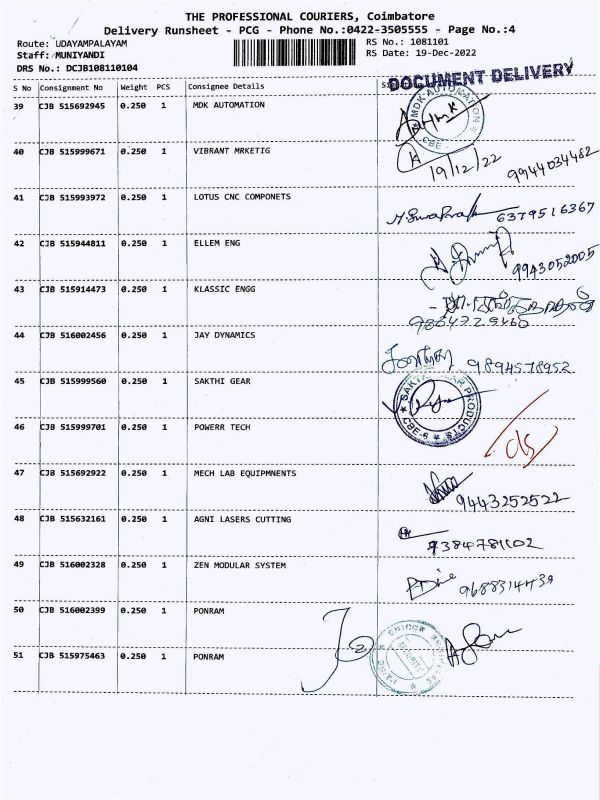 THE PROFESSIONAL COURIERS, Coimbatore
Delivery Runsheet - PCG - Phone No.:0422-3505555 - Page No.:4
Route: UDAYAMPALAYAM RS No.: 1081101
Staff: MUNIYANDI RS Date: 19-Dec-2022
DRS No.: DCJB108110104
DOCUMENT DELIVERY
S No Consignment No Weight PCS Consignee Details
39 CJB 515692945 0.250 1 MDK AUTOMATION
MDK AUTOMATION CBE
40 CJB 515999671 0.250 1 VIBRANT MRKETIG
19/12/22 9944034482
41 CJB 515993972 0.250 1 LOTUS CNC COMPONETS
6379516367
42 CJB 515944811 0.250 1 ELLEM ENG
9943052005
43 CJB 515914473 0.250 1 KLASSIC ENGG
44 CJB 516002456 0.250 1 JAY DYNAMICS
9894578952
45 CJB 515999560 0.250 1 SAKTHI GEAR
PRODUCTS CBE-6
46 CJB 515999701 0.250 1 POWERR TECH
47 CJB 515692922 0.250 1 MECH LAB EQUIPMNENTS
9443252522
48 CJB 515632161 0.250 1 AGNI LASERS CUTTING
9384781102
49 CJB 516002328 0.250 1 ZEN MODULAR SYSTEM
50 CJB 516002399 0.250 1 PONRAM
SECURITY
51 CJB 515975463 0.250 1 PONRAM